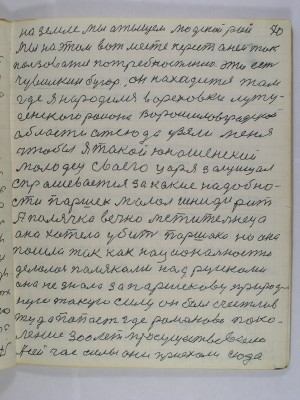 на земле мы отыщем людской рай 80
мы на том вот месте крест а не так
пользовати потребностию. Это ест
Чувилкин бугор, он находится там
где я народился в Ореховки луту-
гинского района Ворошиловградской
области отсюда увяли меня
чтобы я такой юношенский
молодец своего царя защищал
спрашивается за какие надобно-
сти паршек малол и нидурит
А полячка вечно мстителнеца
она хотела убить паршека но она
пошла так как национальности
делалося поляками над рускими
она не знала за паршекову природ-
ную такую силу он был счастлив
туда попаст где романово поко-
ление 300 лет просуществовало
в ей час силы они приехали сюда